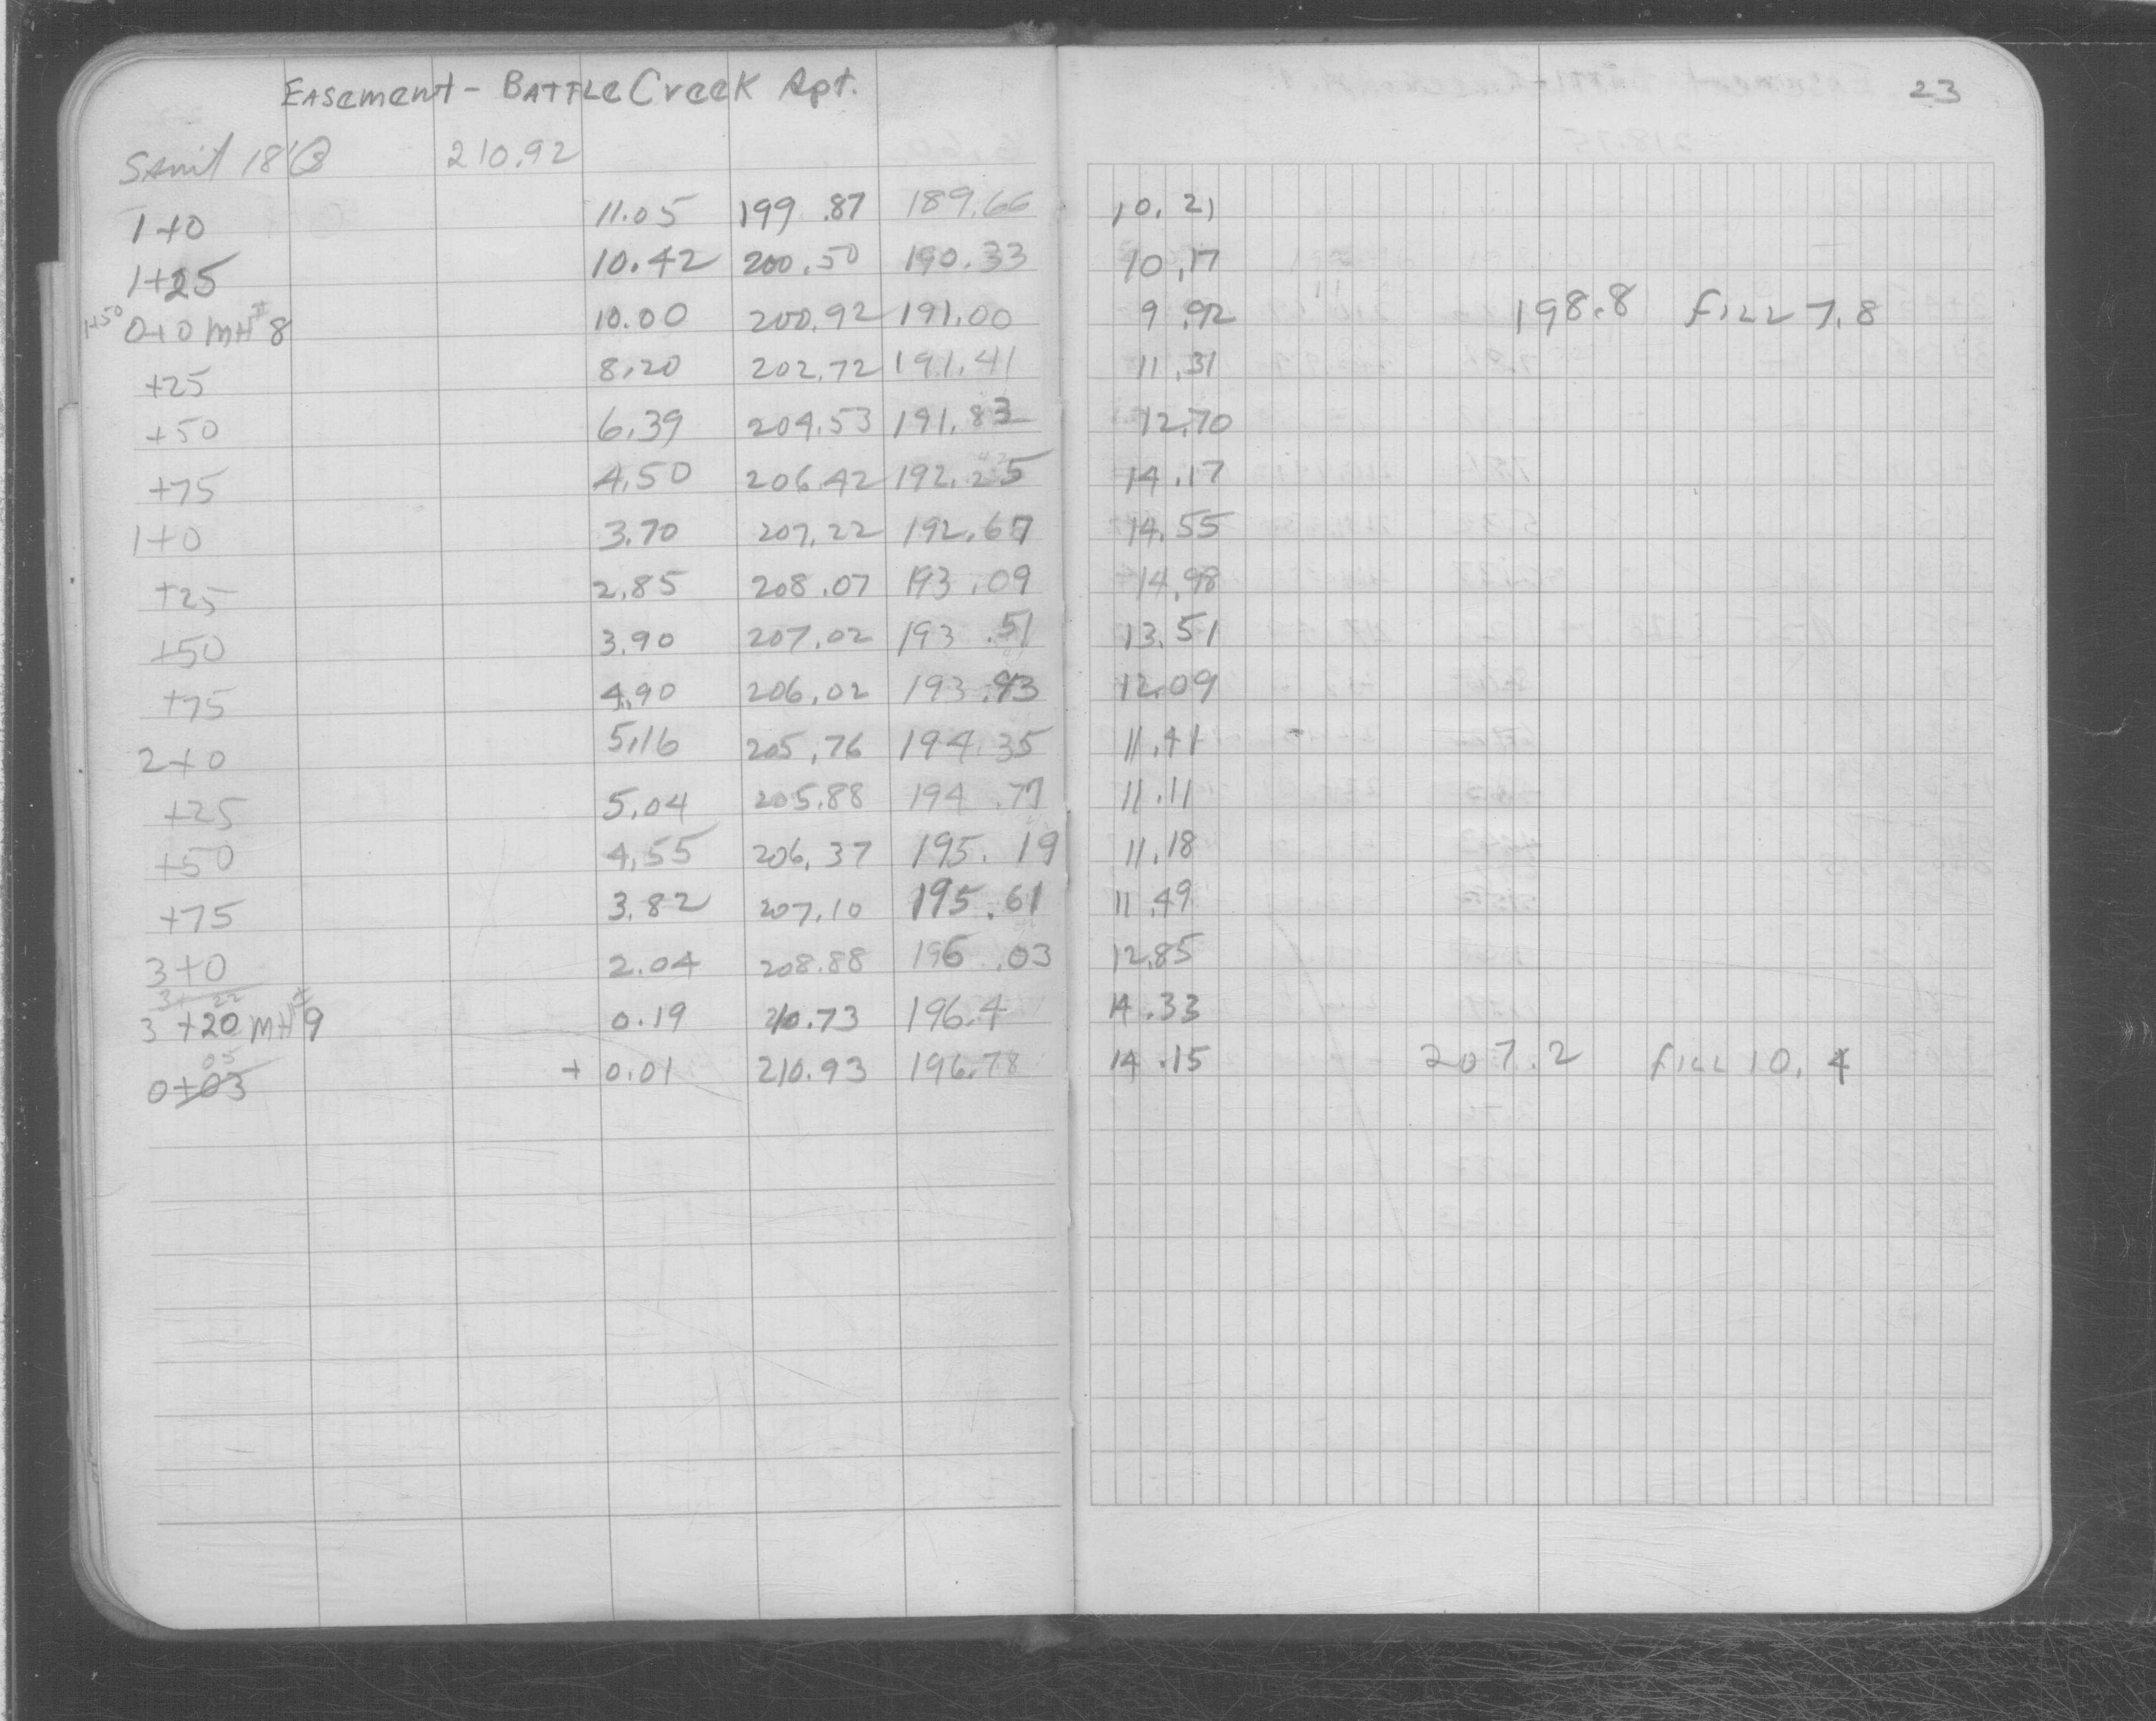 Easement - Battle Creek Apt. 23
Sanit 18' 210.92
1+0 11.05 199.87 189.66 10.21
1+25 10.42 200.50 190.33 10.17
1+50 0+0 MH#8 10.00 200.92 191.00 9.92 198.8 Fill 7.8
+25 8.20 202.72 191.41 11.31
+50 6.39 204.53 191.83 12.70
+75 4.50 206.42 192.25 14.17
1+0 3.70 207.22 192.67 14.55
+25 2.85 208.07 193.09 14.98
+50 3.90 207.02 193.51 13.51
+75 4.90 206.02 193.93 12.09
2+0 5.16 205.76 194.35 11.41
+25 5.04 205.88 194.77 11.11
+50 4.55 206.37 195.19 11.18
+75 3.82 207.10 195.61 11.49
3+0 2.04 208.88 196.03 12.85
3+22
3+20 MH#9 0.19 210.73 196.4 14.33
05
0+03 + 0.01 210.93 196.78 14.15 207.2 Fill 10.4